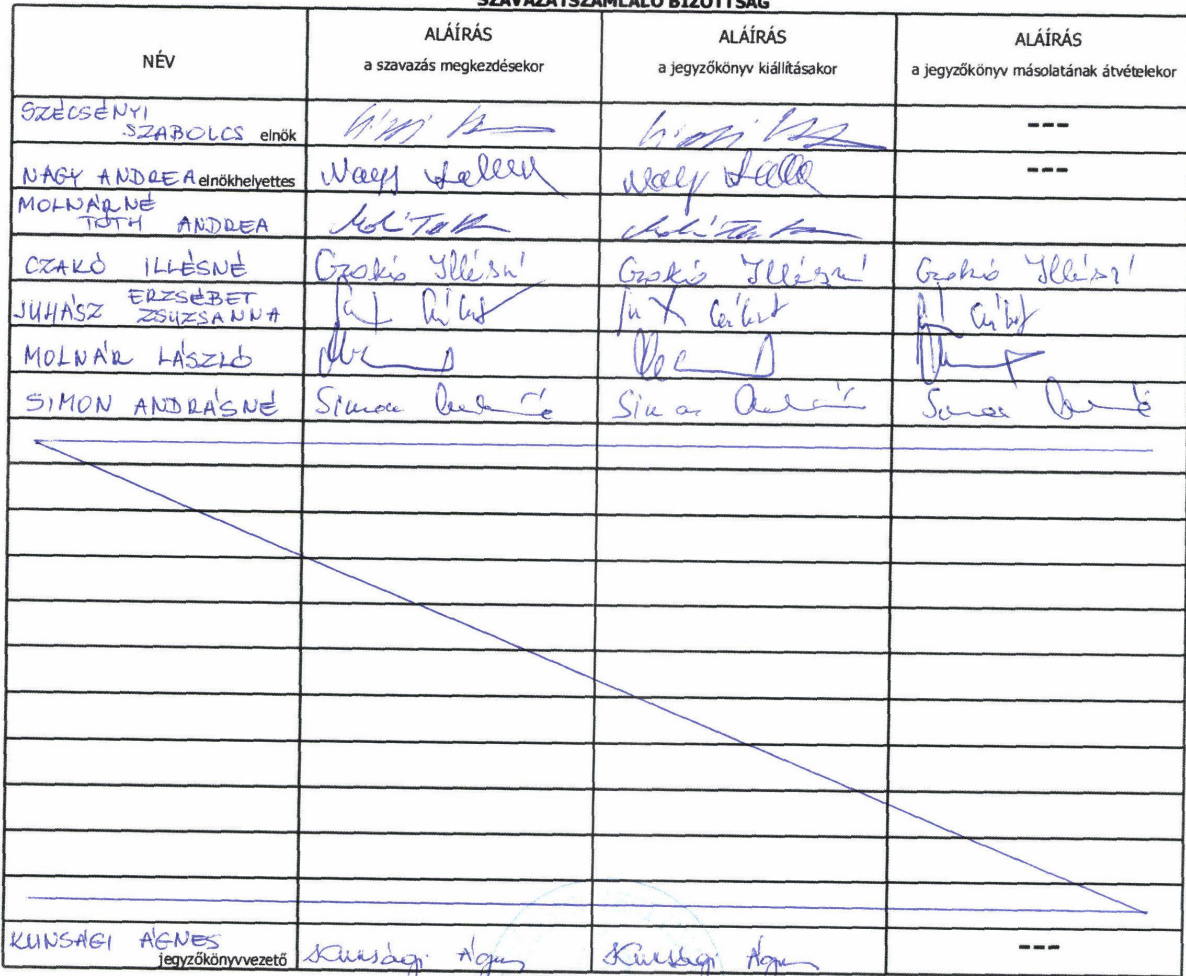 SZAVAZATSZÁMLÁLÓ BIZOTTSÁG
NÉV
ALÁÍRÁS
a szavazás megkezdésekor
ALÁÍRÁS
a jegyzőkönyv kiállításakor
ALÁÍRÁS
a jegyzőkönyv másolatának átvételekor
SZÉCSÉNYI
SZABOLCS elnök
---
NAGY ANDREA elnökhelyettes
Nagy
Nagy
---
MOLNÁRNÉ
TÓTH ANDREA
CZAKÓ ILLÉSNÉ
Czakó Illésné
Czakó Illésné
Czakó Illésné
JUHÁSZ ERZSÉBET
ZSUZSANNA
MOLNÁR LÁSZLÓ
SIMON ANDRÁSNÉ
Simon
Simon
Simon
KUNSÁGI ÁGNES
jegyzőkönyvvezető
Kunsági Ágnes
Kunsági Ágnes
---